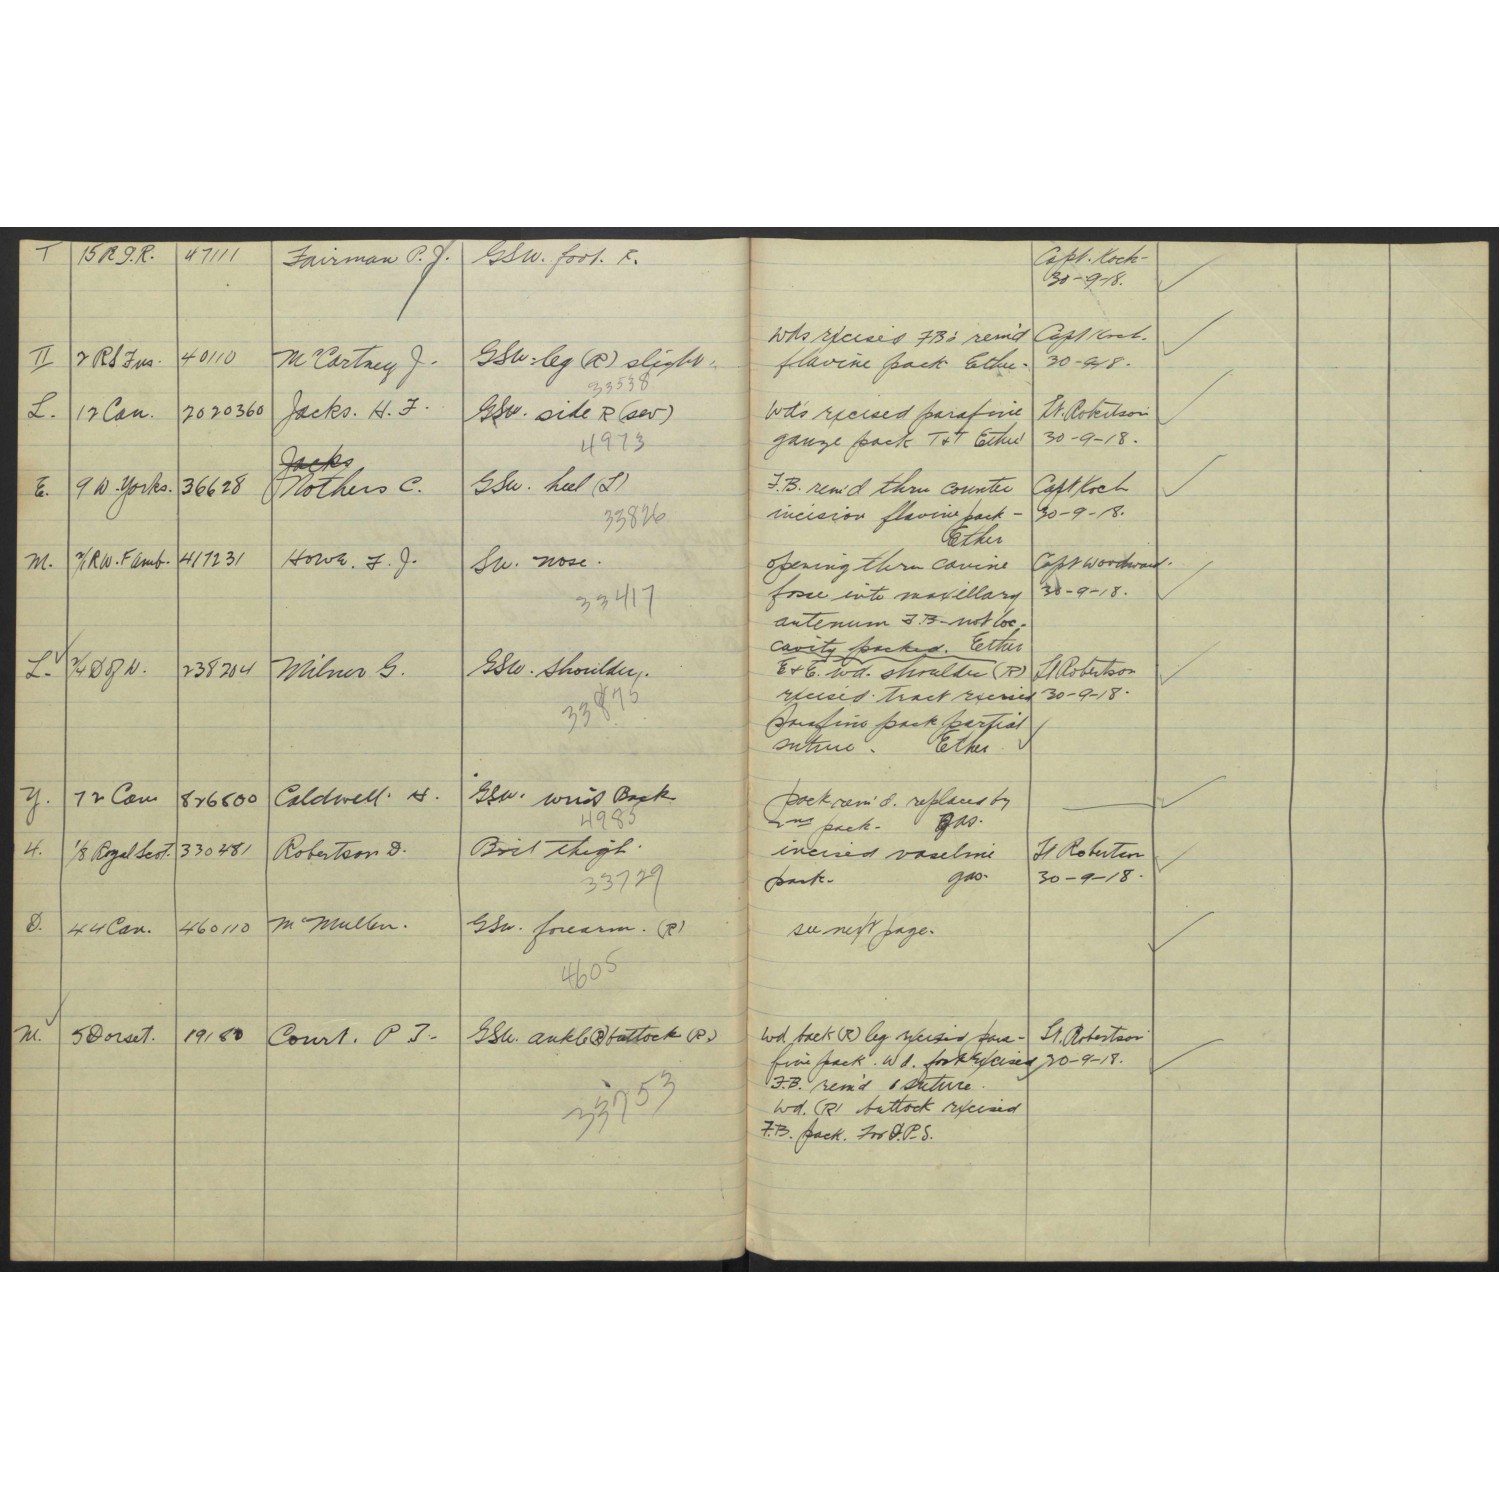 T 15 R.I.R. 47111 Fairman P. J. GSW. foot. R. Capt. Koch-
30-9-18.
wds excised F.B's rem'd Capt Koch.
II 2 RS Fus. 40110 McCartney J. GSW. leg (R) slight. flavine pack Ether. 30-9-18.
33538
L. 12 Can. 2020360 Jacks. H. F. GSW. side R (sev) wd's excised parafine Lt. Robertson
4973 gauze pack T&T Ether 30-9-18.
Jacks
E. 9 W. Yorks. 36628 Mothers C. GSW. heel (L) F.B. rem'd thru counter Capt Koch
33826 incision flavine pack - 30-9-18.
Ether
M. 2/1 R.W. F amb. 417231 Howe. F. J. SW. nose. opening thru canine Capt Woodward.
33417 fosse into maxillary 30-9-18.
antenum F.B- not loc.
cavity packed. Ether
L. 2/4 D of W. 238204 Milner G. GSW. shoulder. E & E. wd. shoulder (R) Lt Robertson
33875 excised. tract excised 30-9-18.
parafine pack partial
suture. Ether
Y. 72 Can 826800 Caldwell. H. GSW. wrist Back pack rem'd. replaced by
4985 pack. gas.
H. 1/8 Royal Scot. 330481 Robertson D. thigh. incised vaseline Lt Robertson
33729 pack. gas. 30-9-18.
D. 44 Can. 460110 McMullen. GSW. forearm. (R) see next page.
4605
M. 5 Dorset. 19180 Court. P F. GSW. ankle (R) buttock (R) wd back (R) leg excised para- Lt. Robertson
fine pack. Wd. foot excised 30-9-18.
F.B. rem'd suture.
33753 wd. (R) buttock excised
F.B. pack. For D.P.S.